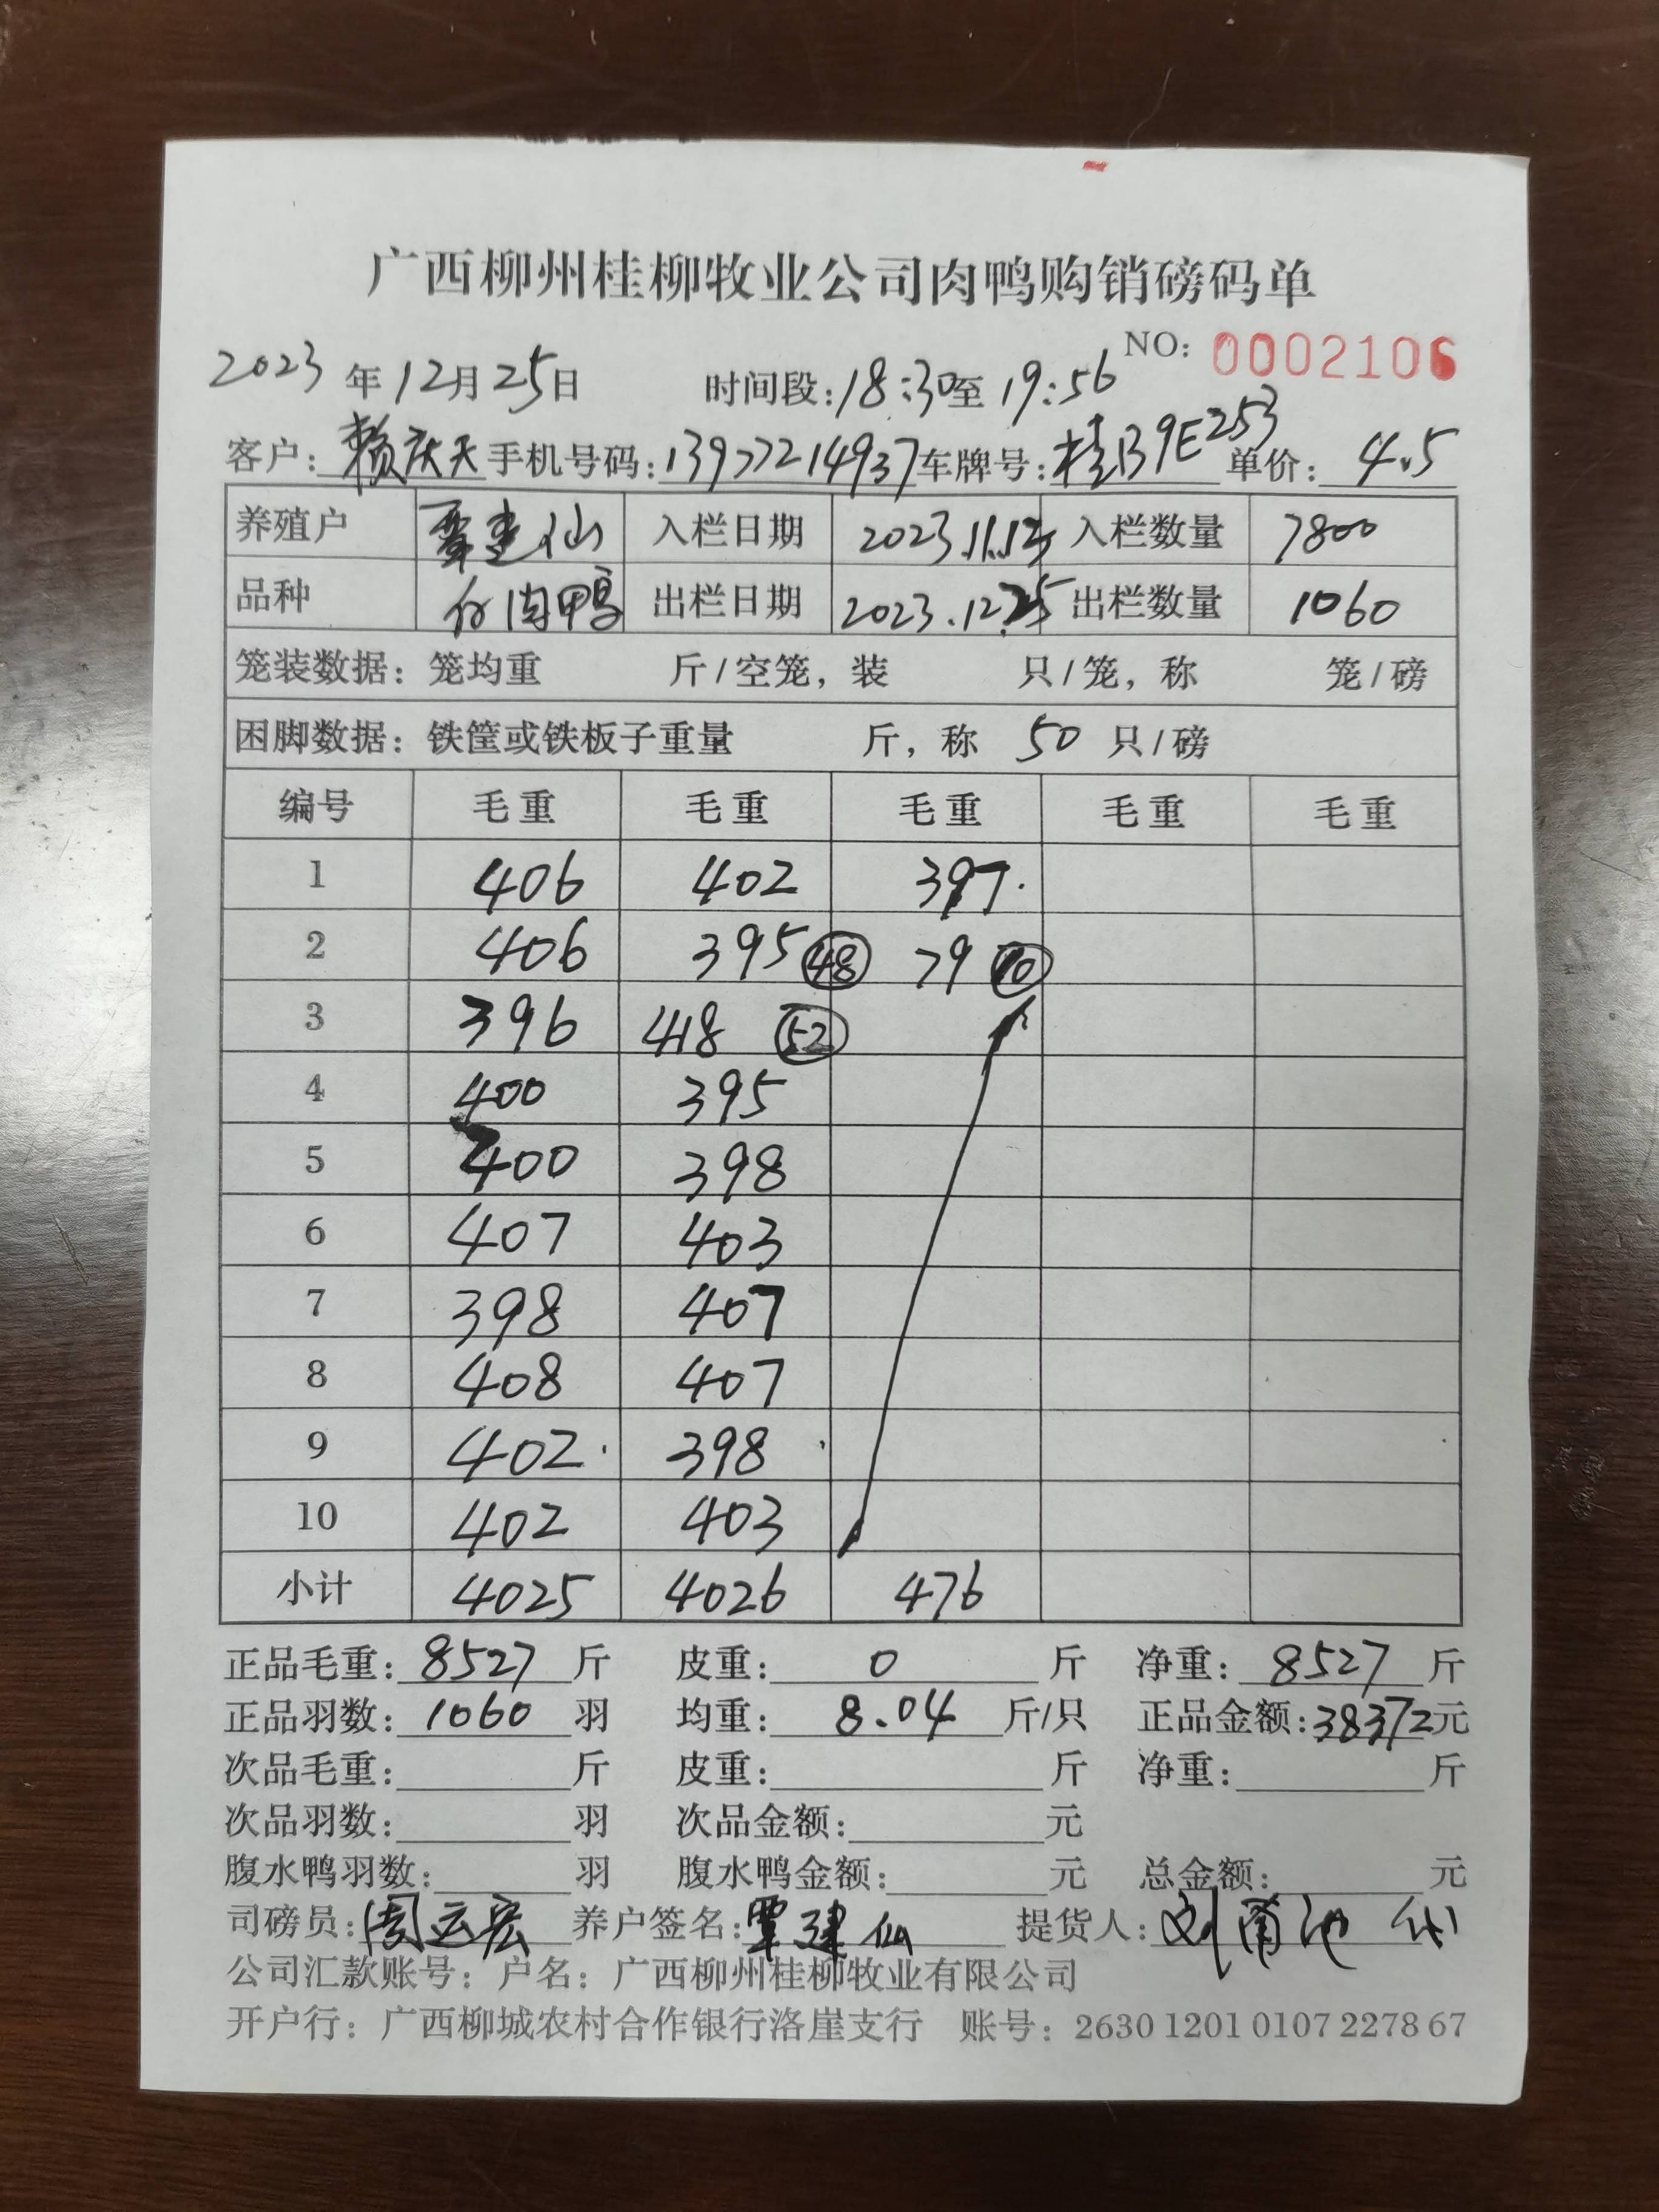 广西柳州桂柳牧业公司肉鸭购销磅码单
NO: 0002106
2023年12月25日 时间段:18:30至19:56
客户:赖庆天 手机号码:13977214937 车牌号:桂B9E253 单价:4.5
养殖户 覃建仙 入栏日期 2023.11.12 入栏数量 7800
品种 白肉鸭 出栏日期 2023.12.25 出栏数量 1060
笼装数据:笼均重 斤/空笼,装 只/笼,称 笼/磅
困脚数据:铁筐或铁板子重量 斤,称 50 只/磅
编号 毛重 毛重 毛重 毛重 毛重
1 406 402 397.
2 406 395 48 79 10
3 396 418 52
4 400 395
5 400 398
6 407 403
7 398 407
8 408 407
9 402 398
10 402 403
小计 4025 4026 476
正品毛重:8527斤 皮重:0斤 净重:8527斤
正品羽数:1060羽 均重:8.04斤/只 正品金额:38372元
次品毛重: 斤 皮重: 斤 净重: 斤
次品羽数: 羽 次品金额: 元
腹水鸭羽数: 羽 腹水鸭金额: 元 总金额: 元
司磅员:周运宏 养户签名:覃建仙 提货人:刘 代
公司汇款账号:户名:广西柳州桂柳牧业有限公司
开户行:广西柳城农村合作银行洛崖支行 账号:2630 1201 0107 2278 67